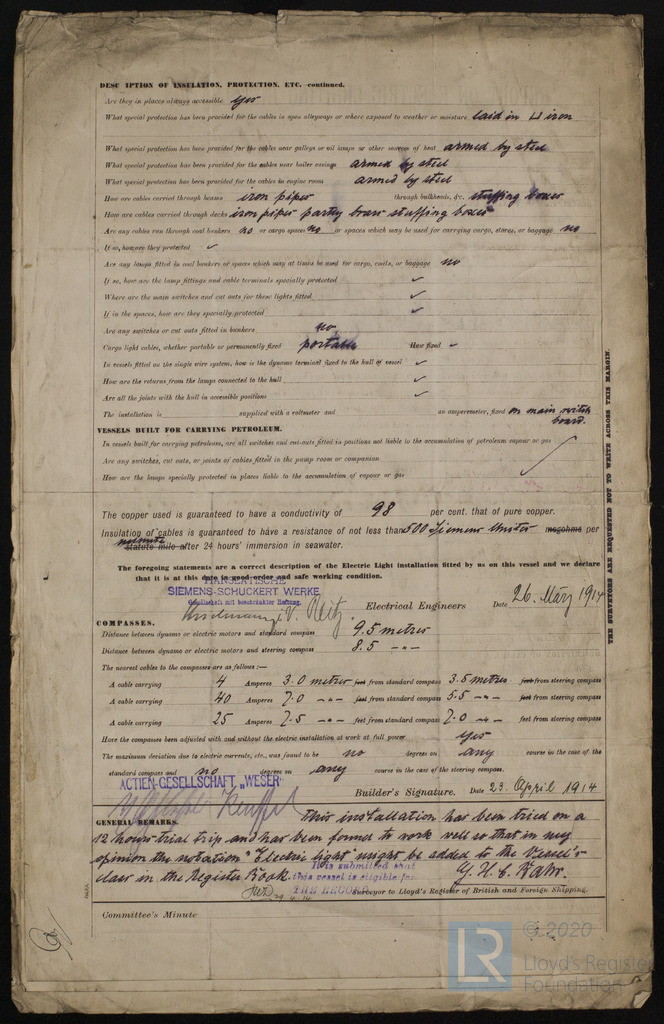 DESCRIPTION OF INSULATION, PROTECTION, ETC.—continued.
Are they in places always accessible yes
What special protection has been provided for the cables in open alleyways or where exposed to weather or moisture laid in iron
What special protection has been provided for the cables near galleys or oil lamps or other sources of heat armed by steel
What special protection has been provided for the cables near boiler casings armed by steel
What special protection has been provided for the cables in engine room armed by steel
How are cables carried through beams iron pipes through bulkheads, &c. stuffing boxes
How are cables carried through decks iron pipes partly brass stuffing boxes
Are any cables run through coal bunkers no or cargo spaces no or spaces which may be used for carrying cargo, stores, or baggage no
If so, how are they protected ✓
Are any lamps fitted in coal bunkers or spaces which may at times be used for cargo, coals, or baggage no
If so, how are the lamp fittings and cable terminals specially protected ✓
Where are the main switches and cut outs for these lights fitted ✓
If in the spaces, how are they specially protected ✓
Are any switches or cut outs fitted in bunkers no
Cargo light cables, whether portable or permanently fixed portable How fixed ✓
In vessels fitted on the single wire system, how is the dynamo terminal fixed to the hull of vessel ✓
How are the returns from the lamps connected to the hull ✓
Are all the joints with the hull in accessible positions ✓
The installation is supplied with a voltmeter and an amperemeter, fixed on main switch
board.
VESSELS BUILT FOR CARRYING PETROLEUM.
In vessels built for carrying petroleum, are all switches and cut-outs fitted in positions not liable to the accumulation of petroleum vapour or gas
Are any switches, cut outs, or joints of cables fitted in the pump room or companion
How are the lamps specially protected in places liable to the accumulation of vapour or gas
THE SURVEYORS ARE REQUESTED NOT TO WRITE ACROSS THIS MARGIN.
The copper used is guaranteed to have a conductivity of 98 per cent. that of pure copper.
Insulation of cables is guaranteed to have a resistance of not less than 500 Siemens megohms per
statute mile after 24 hours' immersion in seawater.
The foregoing statements are a correct description of the Electric Light installation fitted by us on this vessel and we declare
that it is at this date in good order and safe working condition.
HANSEATISCHE
SIEMENS-SCHUCKERT WERKE
Gesellschaft mit beschränkter Haftung.
i.V. Reitz Electrical Engineers Date 26. März 1914
COMPASSES.
Distance between dynamo or electric motors and standard compass 9.5 metres
Distance between dynamo or electric motors and steering compass 8.5 -"-
The nearest cables to the compasses are as follows:—
A cable carrying 4 Amperes 3.0 metres feet from standard compass 3.5 metres feet from steering compass
A cable carrying 40 Amperes 7.0 -"- feet from standard compass 5.5 -"- feet from steering compass
A cable carrying 25 Amperes 7.5 -"- feet from standard compass 7.0 -"- feet from steering compass
Have the compasses been adjusted with and without the electric installation at work at full power yes
The maximum deviation due to electric currents, etc., was found to be no degrees on any course in the case of the
standard compass and no degrees on any course in the case of the steering compass.
ACTIEN-GESELLSCHAFT „WESER"
Builder's Signature. Date 23. April 1914
GENERAL REMARKS. This installation has been tried on a
12 hours trial trip and has been found to work well so that in my
opinion the notation "Electric light" might be added to the Vessel's
class in the Register Book.
It is submitted that
this vessel is eligible for
THE RECORD
29.4.14
Surveyor to Lloyd's Register of British and Foreign Shipping.
Committee's Minute
LR
© 2020
Lloyd's Register
Foundation